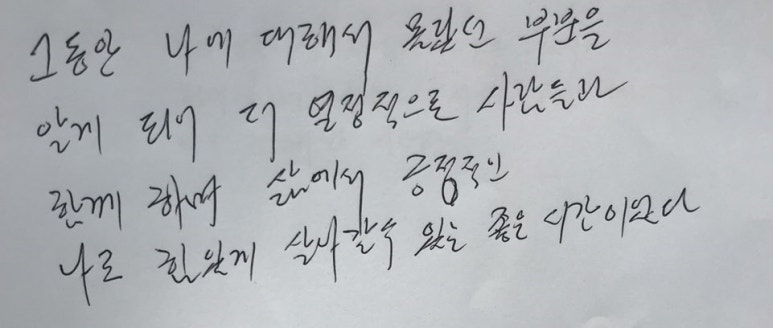 그동안 나에 대해서 몰랐던 부분을
알게 되어 더 열정적으로 사람들과
함께 하며 삶에서 긍정적인
나로 힘있게 살아갈수 있는 좋은 시간이었다